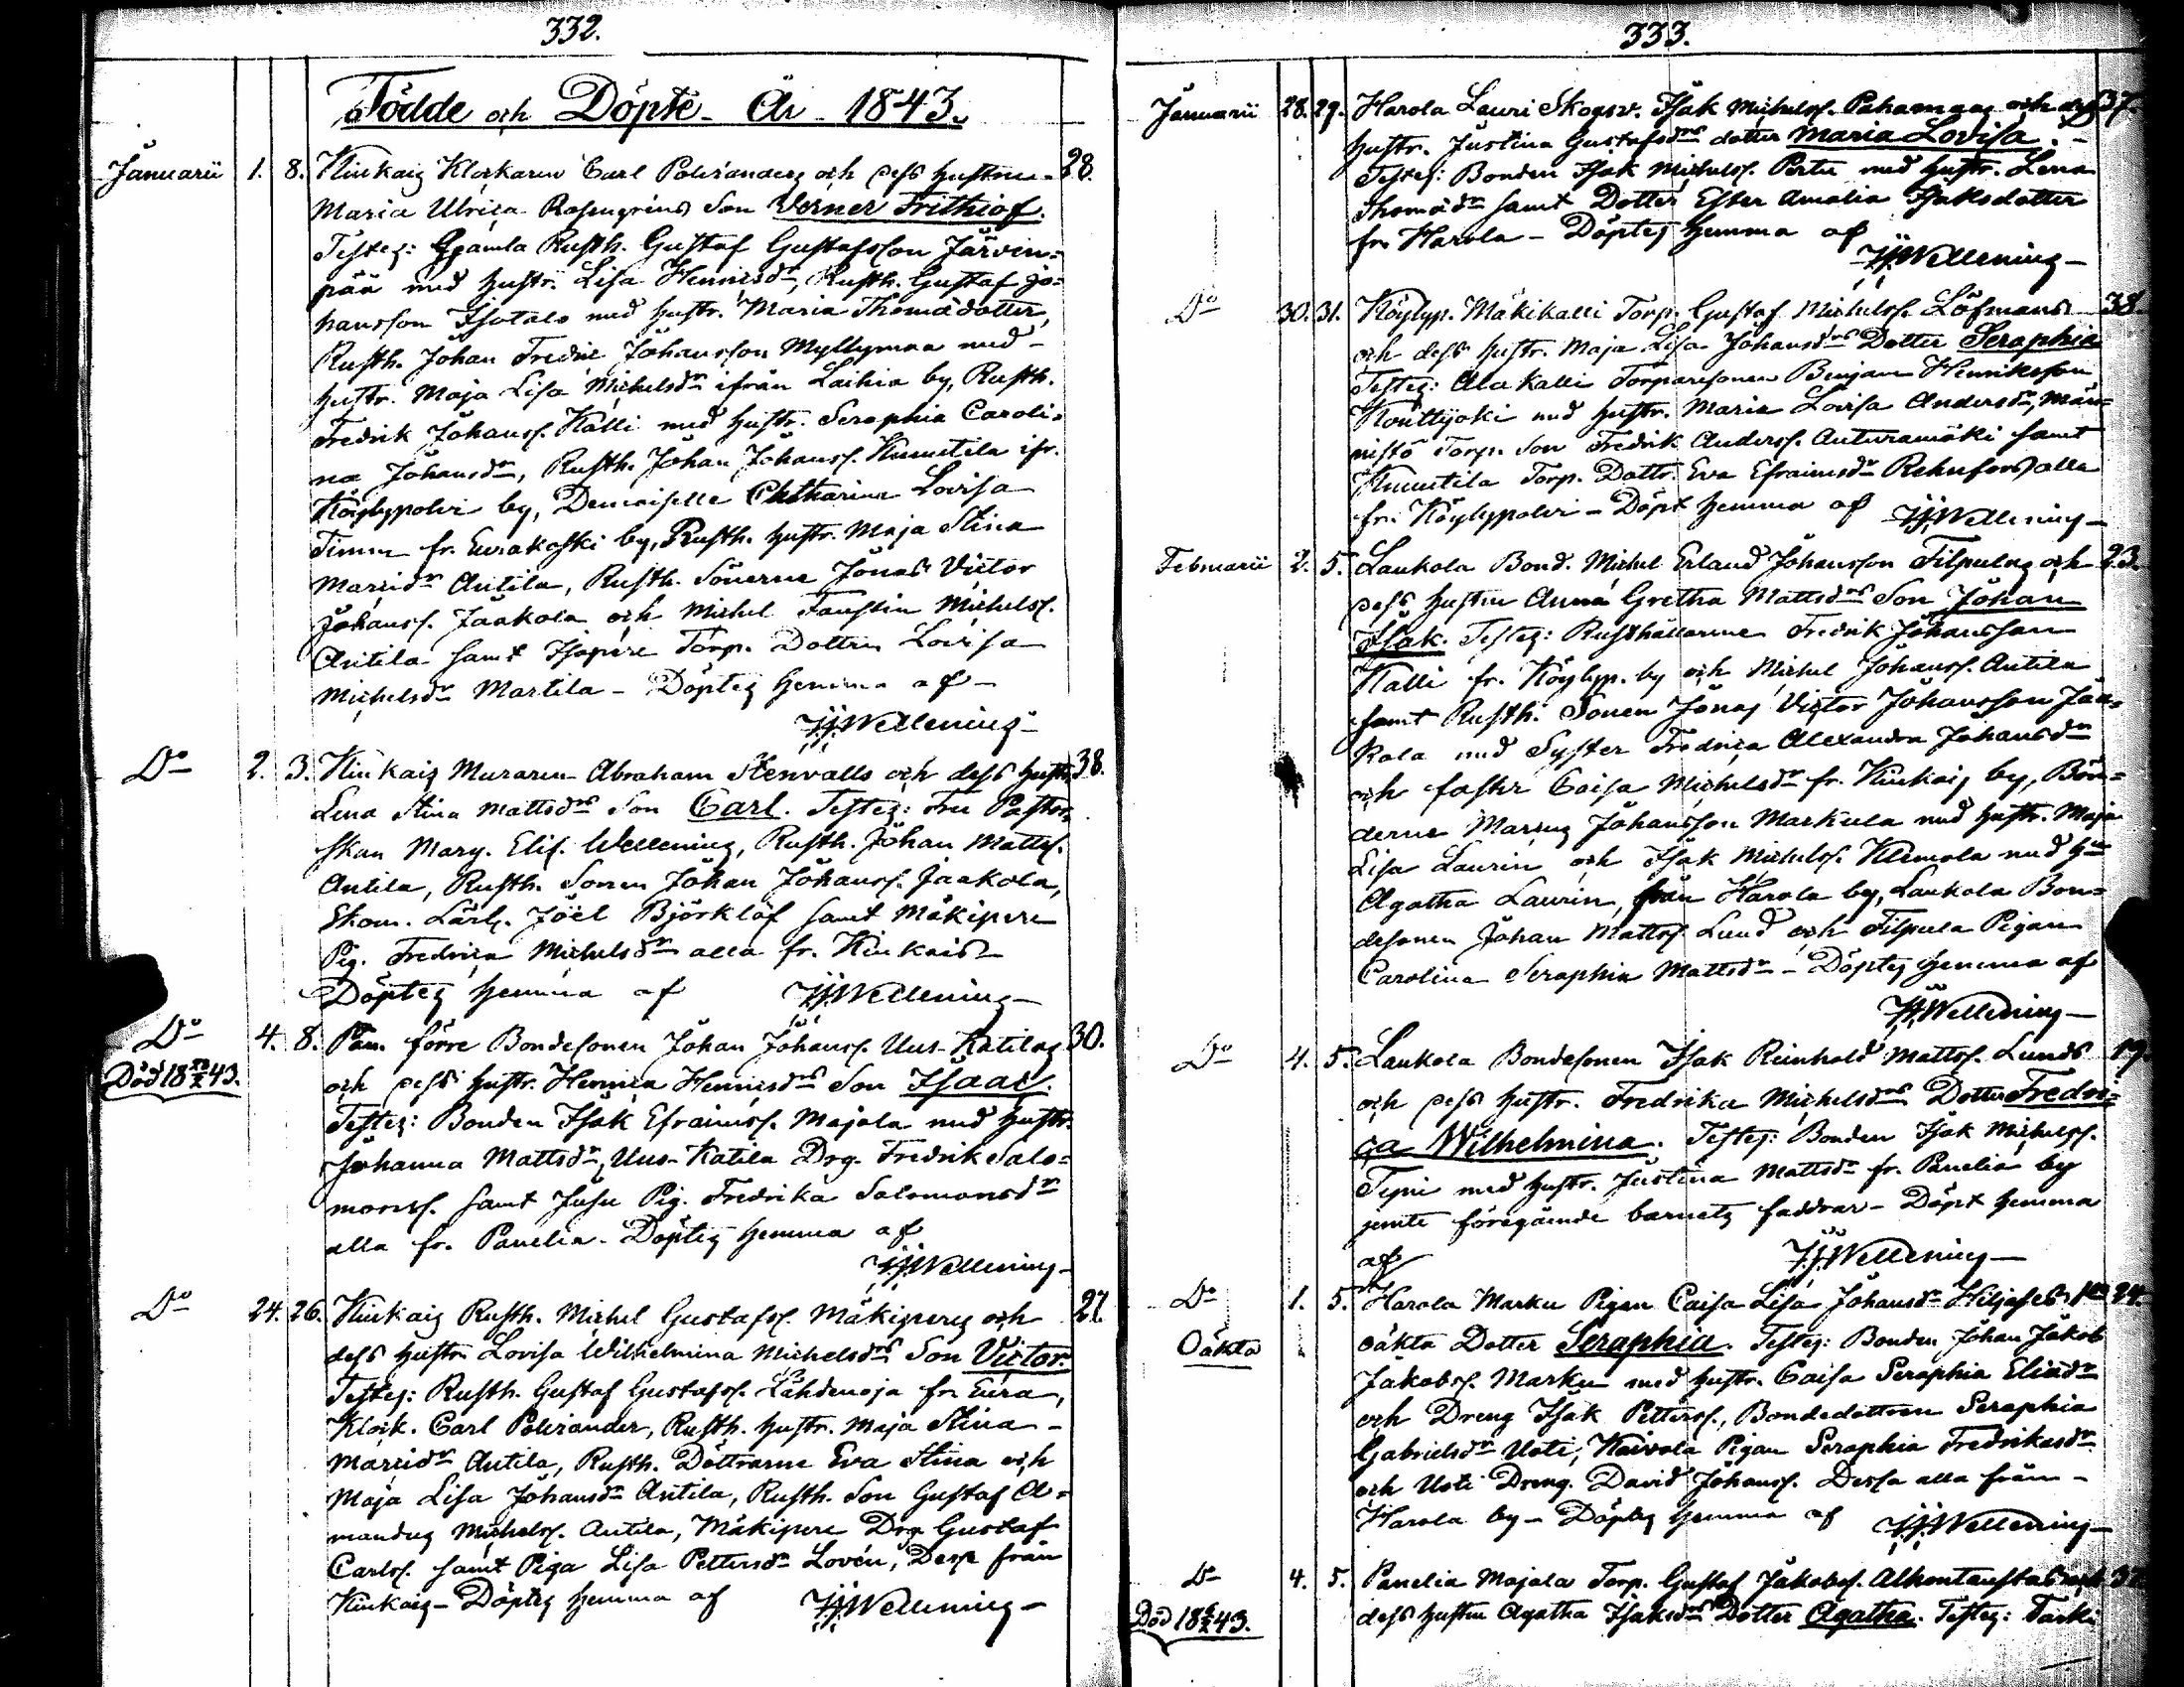 332.
Födde och Döpte År 1843.
Januarii 1. 8. Kiukais Klockaren Carl Polviander och dess hustru 28.
Maria Ulrica Rosengrens Son Verner Frithiof.
Testes: Gamla Rusth. Gustaf Gustafsson Järvin-
pää med hustr. Lisa Henricsdr, Rusth. Gustaf Jo-
hansson Isotalo med hustr. Maria Thomædotter,
Rusth. Johan Fredric Johansson Myllymaa med
hustr. Maja Lisa Michelsdr ifrån Laihia by, Rusth.
Fredrik Johanss. Kalli med hustr. Seraphia Caroli-
na Johansdr, Rusth. Johan Johanss. Knuutila ifr.
Köylypolvi by, Demoiselle Chatharina Lovisa
Timm fr. Eurakoski by, Rusth. hustr. Maja Stina
Marcidr Antila, Rusth. Sönerne Jonas Victor
Johanss. Jaakola och Michel Faustin Michelss.
Antila samt Isopere Torp. Dottren Lovisa
Michelsdr Martila - Döptes hemma af -
Wellenius
Do 2. 3. Kiukais Muraren Abraham Stenvalls och dess hustr. 38.
Lena Stina Mattsdrs Son Carl. Testes: Fru Pastor-
skan Marg. Elis. Wellenius, Rusth. Johan Mattss.
Antila, Rusth. Sonen Johan Johanss. Jaakola,
Skom. Lärl. Joël Björklöf samt Mäkipere
Pig. Fredrica Michelsdr alla fr. Kiukais
Döptes hemma af Wellenius
Do 4. 8. Pan. förre Bondesonen Johan Johanss. Uus-Katilas 30.
Död 18 43. och dess hustr. Henrica Henricsdrs Son Isaac.
Testes: Bonden Isak Efraimss. Majala med hustr.
Johanna Mattsdr, Uus-Katila Drg. Fredrik Salo-
monss. samt Pig. Fredrika Salomonsdr
alla fr. Panelia. Döptes hemma af
Wellenius
Do 24. 26. Kiukais Rusth. Michel Gustafss. Mäkiperes och 27.
dess hustr. Lovisa Wilhelmina Michelsdrs Son Victor
Testes: Rusth. Gustaf Gustafss. Lähdenoja fr. Eura,
Klock. Carl Polviander, Rusth. hustr. Maja Stina
Marcidr Antila, Rusth. Döttrarne Eva Stina och
Maja Lisa Johansdr Antila, Rusth. Son Gustaf A-
mandus Michelss. Antila, Mäkipere Drg. Gustaf
Carlss. samt Piga Lisa Pettersdr Lovén, Desse från
Kiukais - Döptes hemma af Wellenius
333.
Januarii 28. 29. Harola Lauri Skogsv. Isak Michelss. Pahamaas och dess 37.
hustr. Justina Gustafsdrs dotter Maria Lovisa.
Testes: Bonden Isak Michelss. Perttu med hustr. Lena
Thomædr samt Dotter Ester Amalia Isaksdotter
fr. Harola - Döptes hemma af
Wellenius
Do 30. 31. Köylyp. Mäkikalli Torp. Gustaf Michelss. Löfmans 38.
och dess hustr. Maja Lisa Johansdrs Dotter Seraphia
Testes: Alakalli Torparesonen Benjam Henriksson
Kouttjoki med hustr. Maria Lovisa Andersdr, Män-
nistö Torp. Son Fredrik Anderss. Anturamäki samt
Knuutila Torp. Dottr. Eva Efraimsdr Rehnfors alla
fr. Köylypolvi - Döpt hemma af Wellenius
Februarii 2. 5. Laukola Bond. Michel Erland Johansson Filpulas och 23.
dess hustru Anna Gretha Mattsdrs Son Johan
Isak. Testes: Rusthållarene Fredrik Johansson
Kalli fr. Köylyp. by och Michel Johanss. Antila
samt Rusth. Sonen Jonas Victor Johansson Jaa-
kola med Syster Fredrica Alexandra Johansdr
och faster Caisa Michelsdr fr. Kiukais by, Bön-
derne Marcus Johansson Markula med hustr. Maja
Lisa Laurin och Isak Michelss. Klemola med hu
Agatha Laurin, från Harola by, Laukola Bon-
desonen Johan Mattss. Lund och Filpula Pigan
Carolina Seraphia Mattsdr - Döptes hemma af
Wellenius
Do 4. 5. Laukola Bondesonen Isak Reinhold Mattss. Lunds 19.
och dess hustr. Fredrika Michelsdrs Dotter Fredri-
ca Wilhelmina. Testes: Bonden Isak Michelss.
med hustr. Justina Mattsdr fr. Panelia by
jemte föregående barnets faddrar - Döpt hemma
af Wellenius
Do 1. 5. Harola Marku Pigan Caisa Lisa Johansdr 24.
Oäkta oäkta Dotter Seraphia. Testes: Bonden Johan Jakob
Jakobss. Marku med hustr. Caisa Seraphia Eliædr
och Dreng Isak Petterss., Bondedottren Seraphia
Gabrielsdr Uoti, Kaivola Pigan Seraphia Fredriksdr
och Uoti Dreng. David Johanss. Dessa alla från
Harola by - Döptes hemma af Wellenius
Do 4. 5. Panelia Majala Torp. Gustaf Jakobss. och 37.
Död 18 43. dess hustru Agatha Isaksdrs Dotter Agatha. Testes: